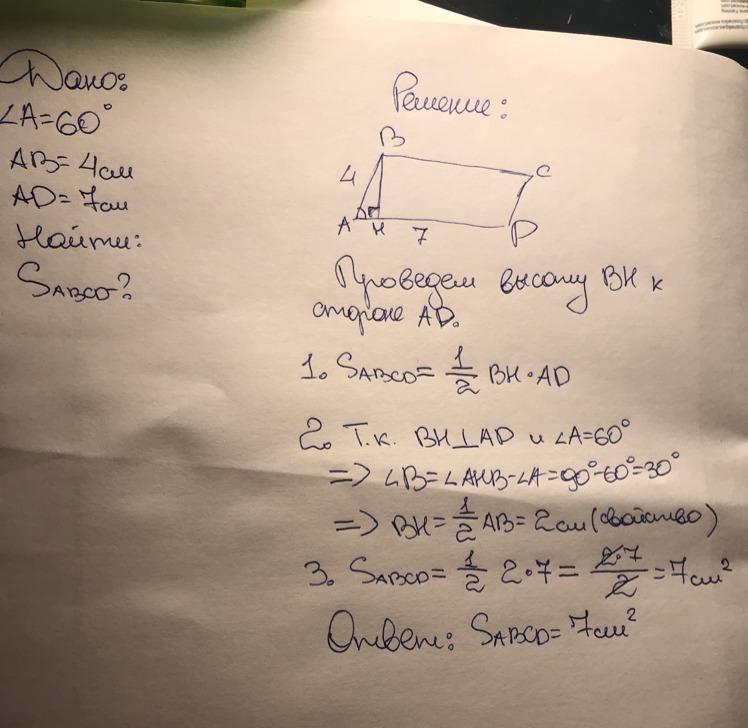 Дано:
∠A=60°
AB=4см
AD=7см
Найти:
SABCD?
Решение:
B
4
C
A
H
7
D
Проведем высоту BH к
стороне AD.
1. SABCD=1/2 BH·AD
2. Т.к. BH⊥AD и ∠A=60°
=> ∠B=∠AHB-∠A=90°-60°=30°
=> BH=1/2 AB=2см(свойство)
3. SABCD=1/2 2·7=2·7/2=7см²
Ответ: SABCD=7см²